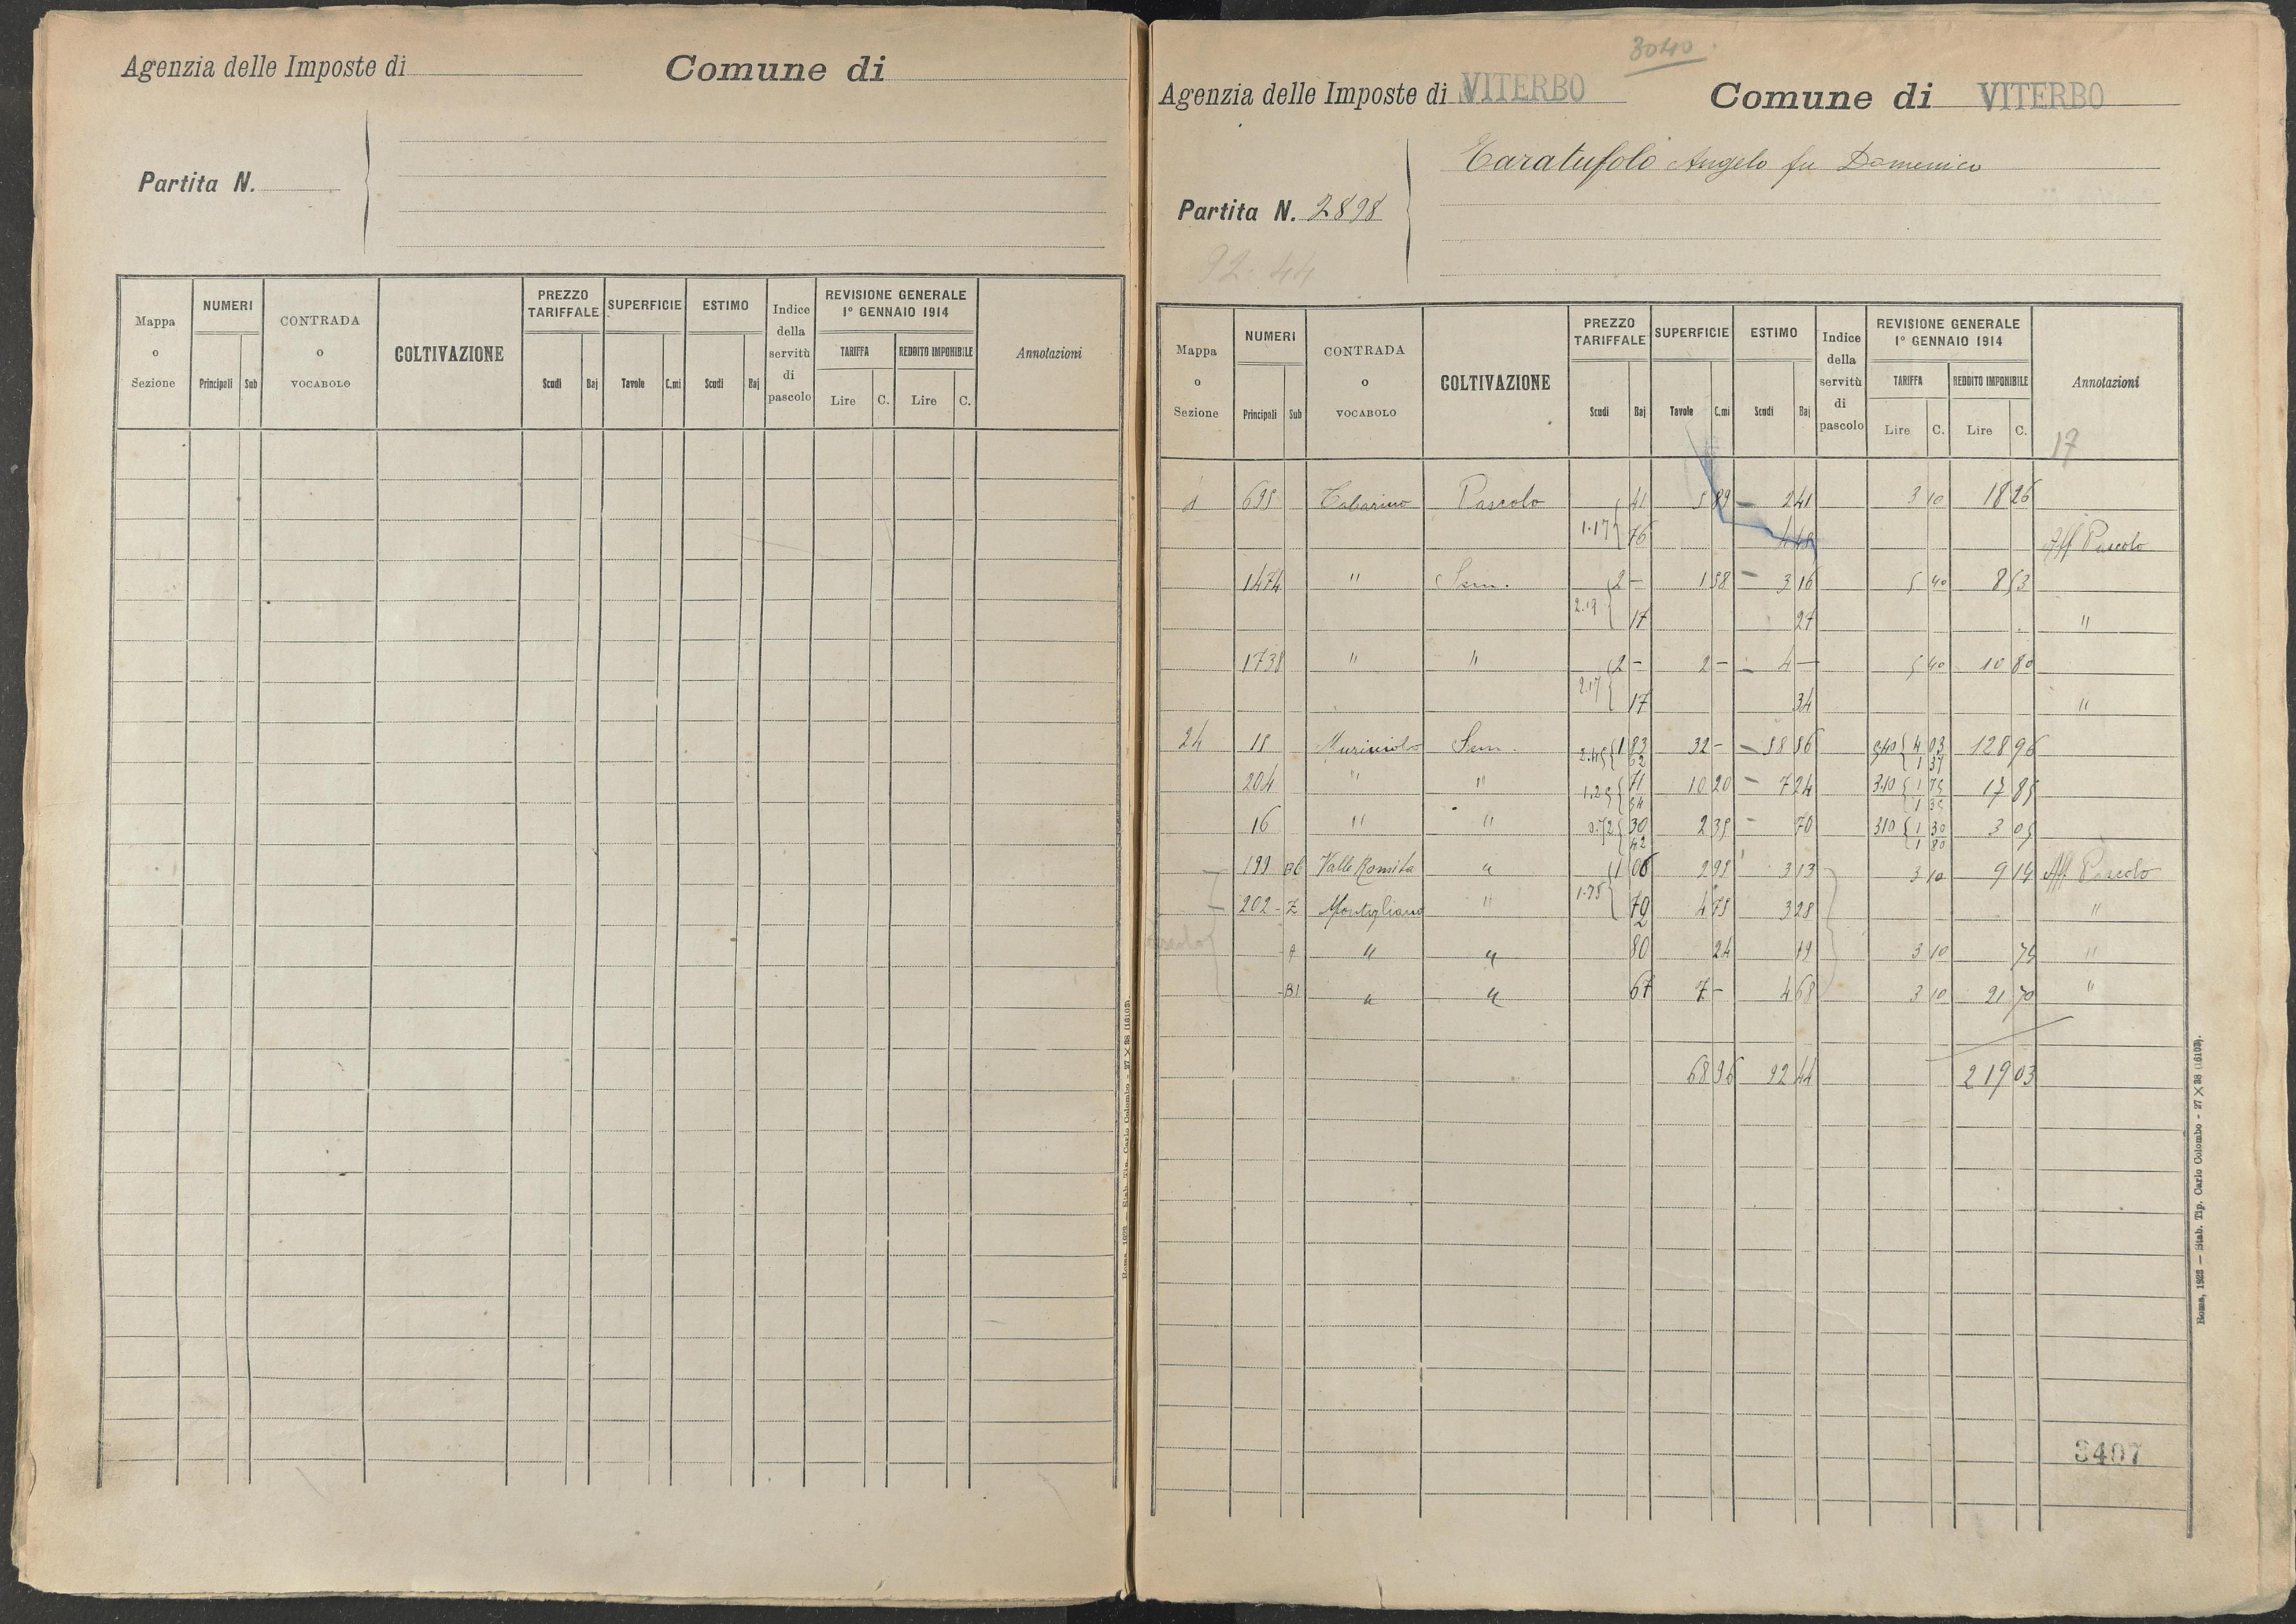 Agenzia delle Imposte di Comune di
Partita N.
Mappa o Sezione NUMERI Principali Sub CONTRADA o VOCABOLO COLTIVAZIONE PREZZO TARIFFALE Scudi Baj SUPERFICIE Tavole C.mi ESTIMO Scudi Baj Indice della servitù di pascolo REVISIONE GENERALE 1° GENNAIO 1914 TARIFFA Lire C. REDDITO IMPONIBILE Lire C. Annotazioni
Roma, 1923 — Stab. Tip. Carlo Colombo - 27 × 38 (16103).
3040
Agenzia delle Imposte di VITERBO Comune di VITERBO
Taratufolo Angelo fu Domenico
Partita N. 2898
92.44
Mappa o Sezione NUMERI Principali Sub CONTRADA o VOCABOLO COLTIVAZIONE PREZZO TARIFFALE Scudi Baj SUPERFICIE Tavole C.mi ESTIMO Scudi Baj Indice della servitù di pascolo REVISIONE GENERALE 1° GENNAIO 1914 TARIFFA Lire C. REDDITO IMPONIBILE Lire C. Annotazioni
17
1 695 Tabarino Pascolo 41 5 89 2 41 3 10 18 26
1.17 76 4 48 Aff Pascolo
1474 " Sem. 2 - 1 58 3 16 5 40 8 53
2.17 17 27 "
1738 " " 2 - 2 - 4 - 5 40 10 80
2.17 17 34 "
24 15 Sem. 2.45 1 83 32 - 58 56 5.40 4 03 128 96
62 1 37
204 " " 1.25 71 10 20 7 24 3.10 1 75 17 85
54 1 35
16 " " 0.72 30 2 35 70 310 1 30 3 05
42 1 80
199 Valle Romita " 1 06 2 95 3 13 3 10 9 14 Aff Pascolo
202 - Z Montigliano " 1.75 70 4 75 3 28 "
A " " 80 24 19 3 10 75 "
B1 " " 67 7 - 4 68 3 10 21 70 "
68 96 92 44 219 03
3407
Roma, 1923 — Stab. Tip. Carlo Colombo - 27 × 38 (16103).